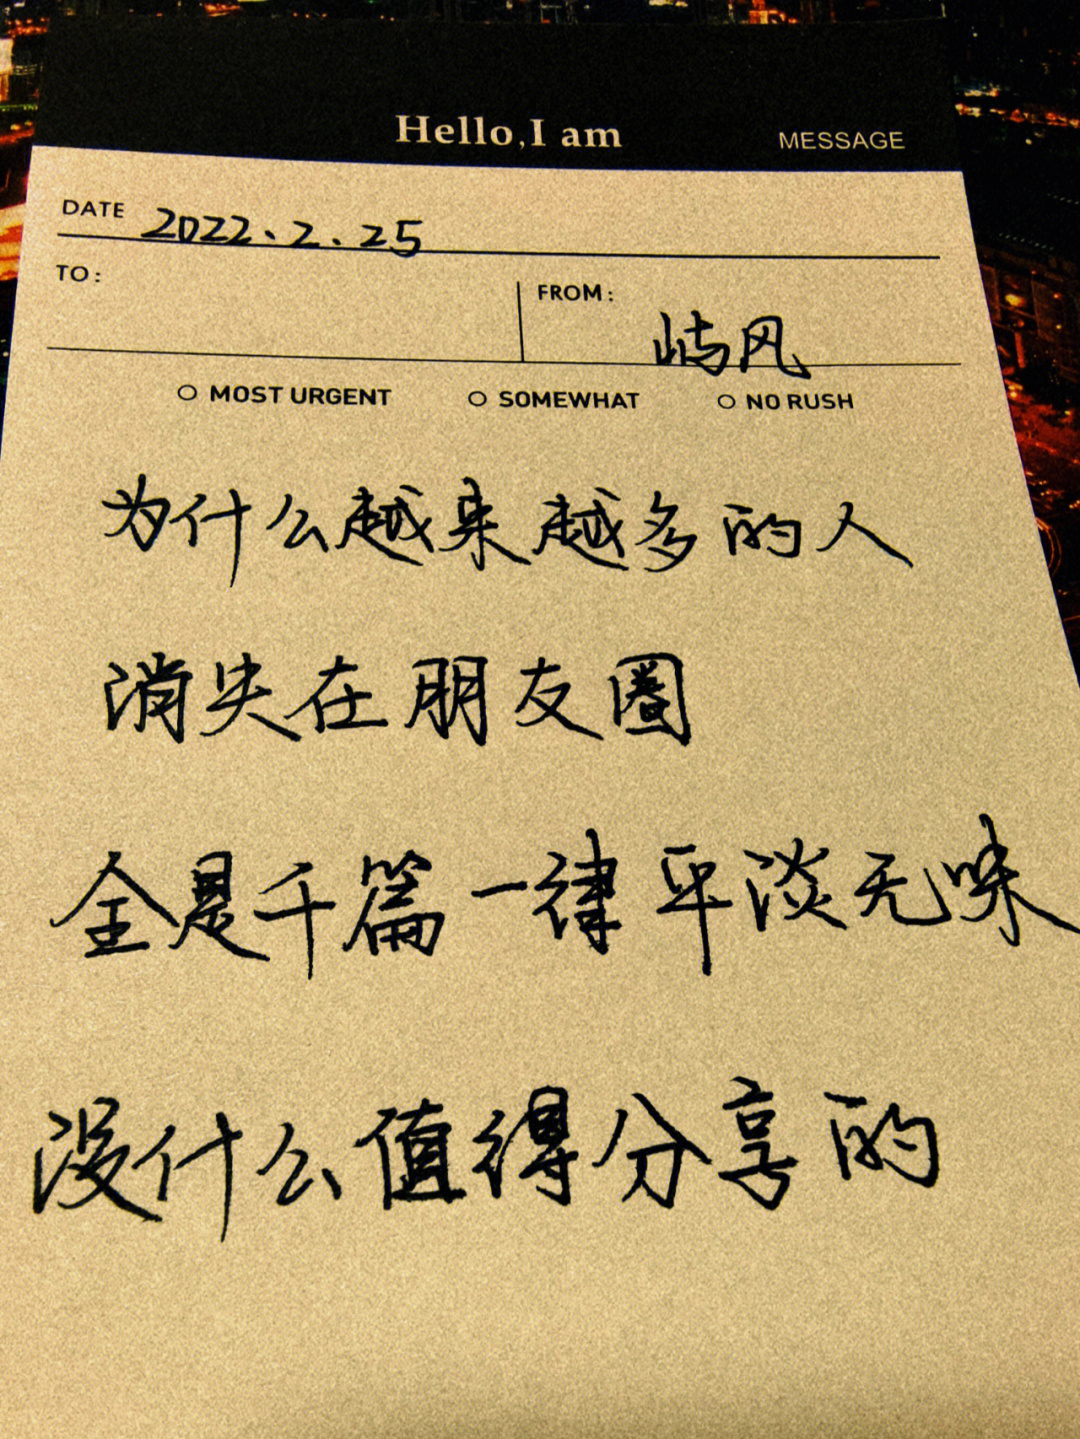 Hello,I am MESSAGE
DATE 2022.2.25
TO: FROM: 屿风
MOST URGENT SOMEWHAT NO RUSH
为什么越来越多的人
消失在朋友圈
全是千篇一律平淡无味
没什么值得分享的